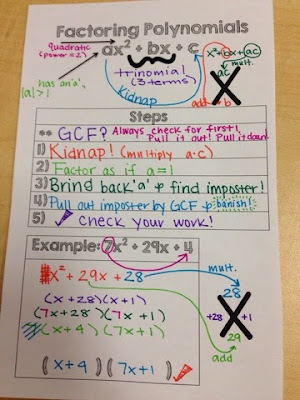 Factoring Polynomials
quadratic
(power=2)
ax² + bx + c
x²+bx+(ac)
mult.
ac
add → b
has an 'a',
|a| > 1
trinomial
(3 terms)
kidnap
Steps
** GCF? Always check for first!
Pull it out! Pull it down!
1) Kidnap! (multiply a·c)
2) Factor as if a=1
3) Bring back 'a' & find imposter!
4) Pull out imposter by GCF & banish!
5) ✓ Check your work!
Example: 7x² + 29x + 4
x² + 29x + 28
mult.
28
(x+28)(x+1)
+28 X +1
(7x+28)(7x+1)
29
(x+4)(7x+1)
add
(x+4)(7x+1)